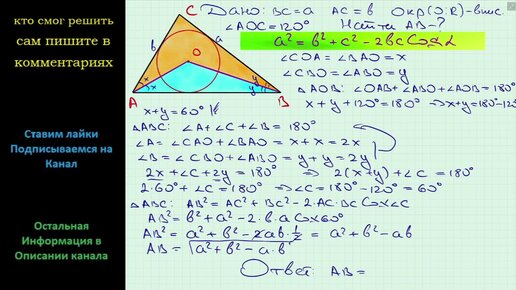 кто смог решить
сам пишите в
комментариях
Ставим лайки
Подписываемся на
Канал
Остальная
Информация в
Описании канала
Дано: BC=a AC=b Окр(O;R)-впис.
∠AOC=120° Найти AB-?
a²=b²+c²-2bcCosα
∠COA=∠BAO=x
∠CBO=∠ABO=y
△AOB: ∠OAB+∠ABO+∠AOB=180°
x+y+120°=180° ⇒x+y=180°-12
x+y=60°
△ABC: ∠A+∠C+∠B=180°
∠A=∠CAO+∠BAO=x+x=2x
∠B=∠CBO+∠ABO=y+y=2y
2x+∠C+2y=180° ⇒ 2(x+y)+∠C=180°
2·60°+∠C=180° ⇒∠C=180°-120°=60°
△ABC: AB²=AC²+BC²-2·AC·BC·Cos∠C
AB²=b²+a²-2·b·a·Cos60°
AB²=a²+b²-2ab·½=a²+b²-ab
AB=√a²+b²-a·b
Ответ: AB=
C
b
a
O
x
x
y
y
A
B